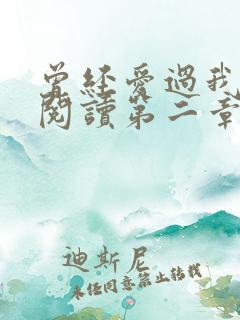 曾經愛過我
閱讀第二章
迪斯尼
未经同意禁止转载